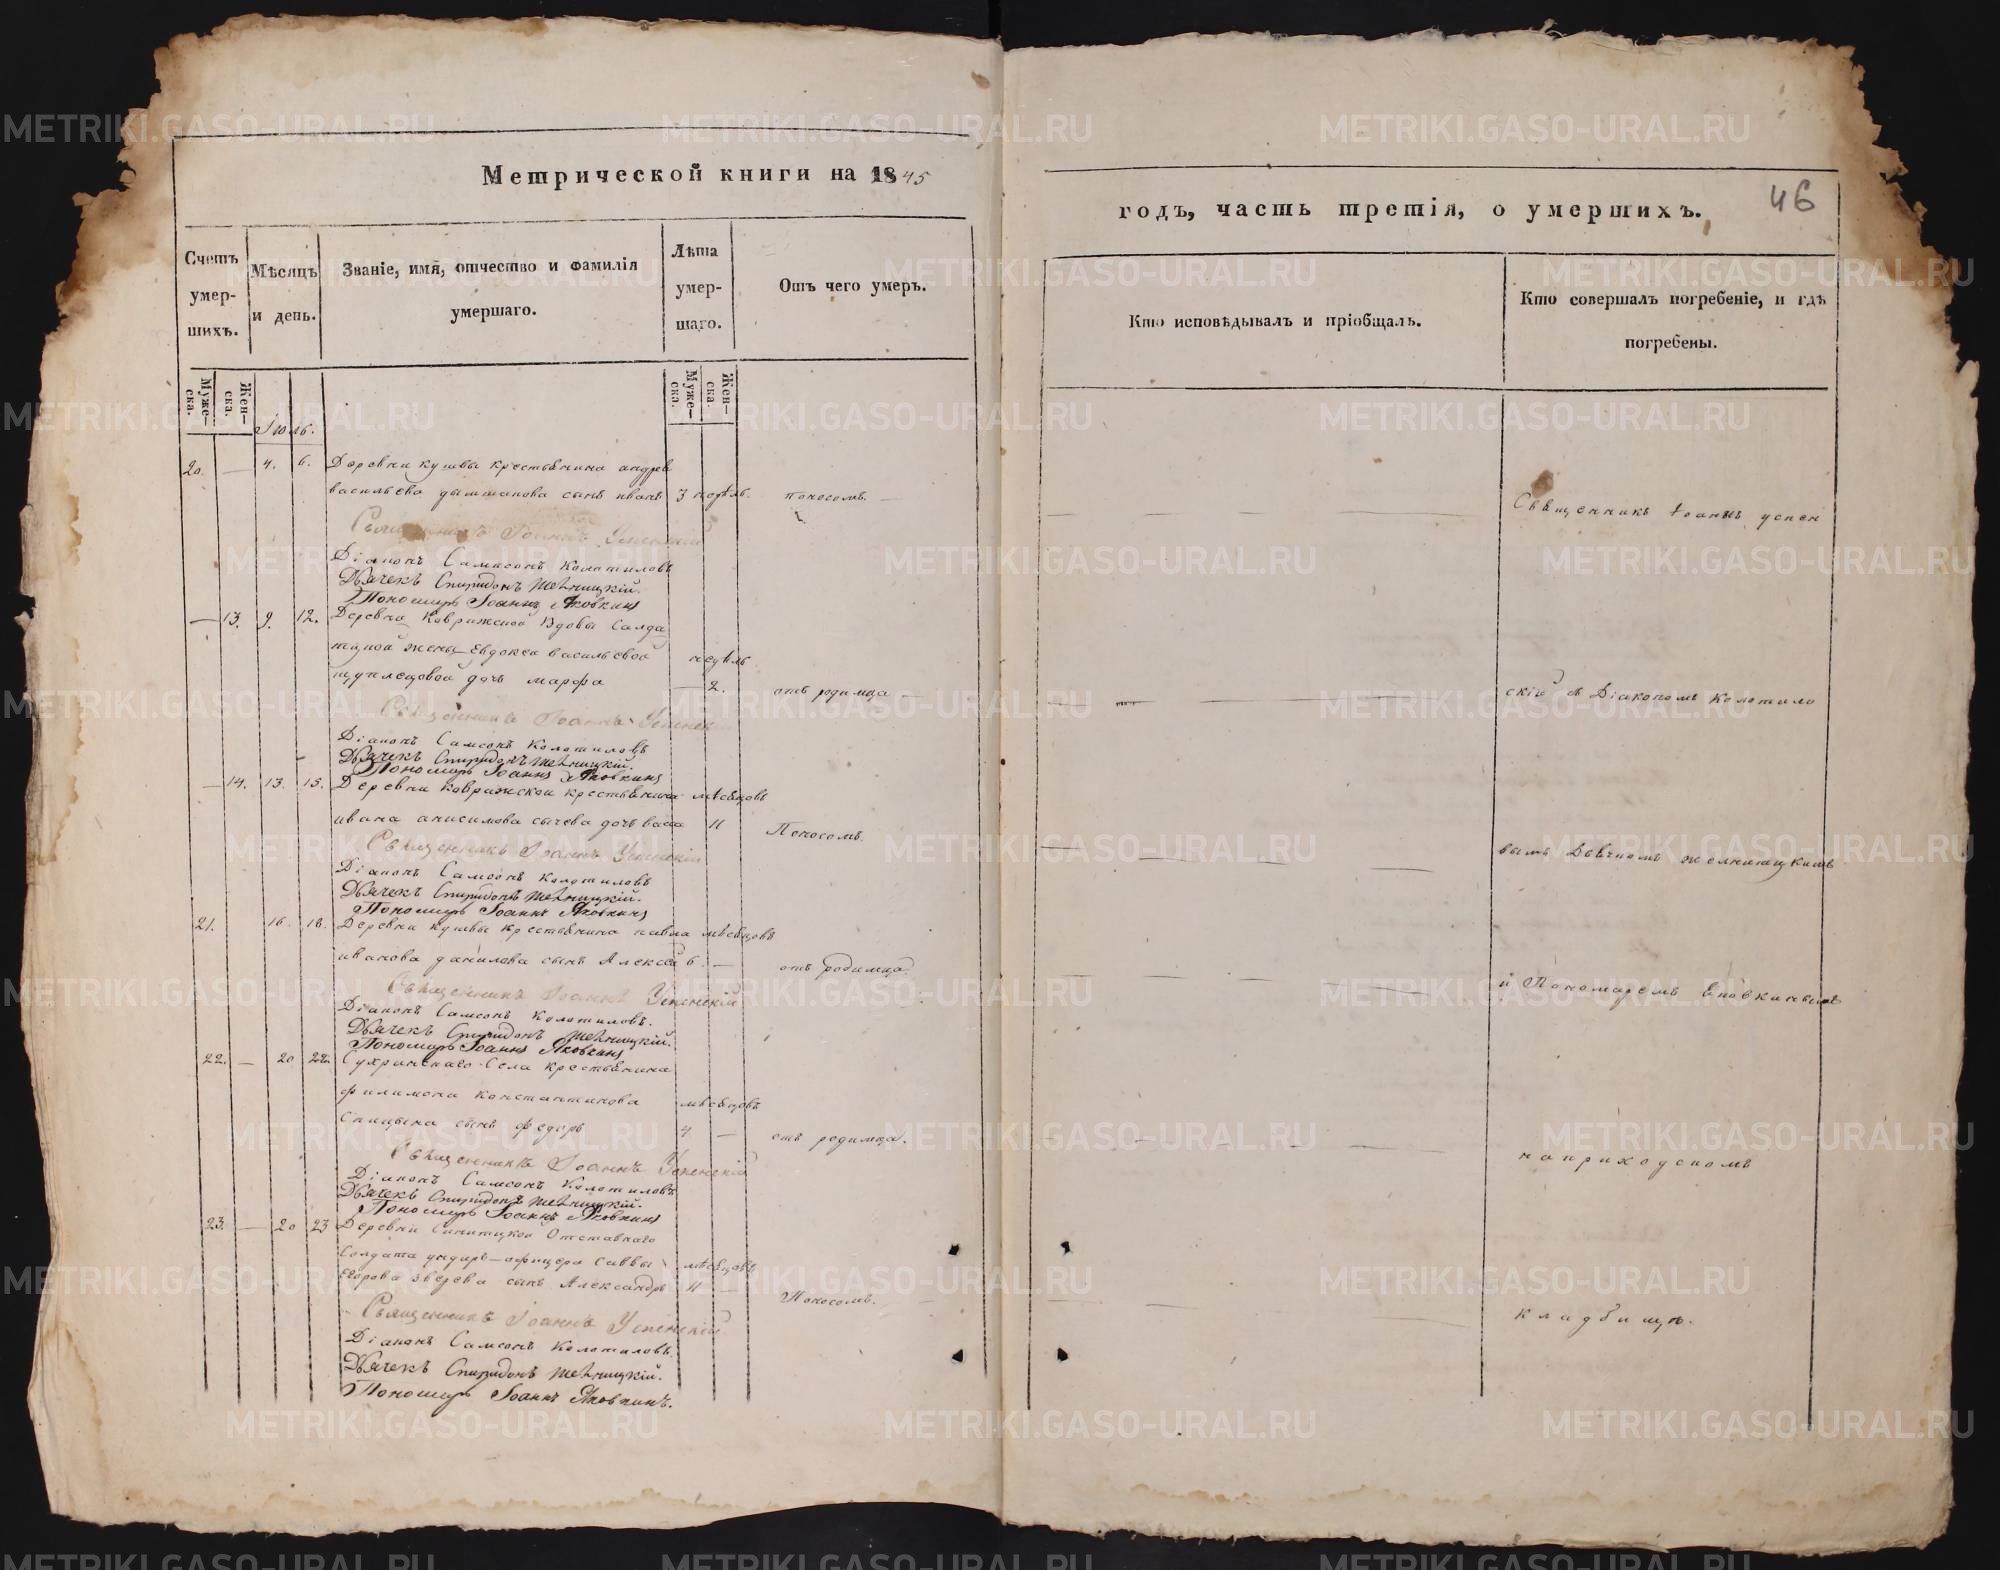 Метрической книги на 1845
Счетъ умер-шихъ.
Мѣсяцъ и день.
Званіе, имя, отчество и фамилія умершаго.
Лѣта умер-шаго.
Отъ чего умеръ.
Муже-ска.
Жен-ска.
Муже-ска.
Жен-ска.
Іюль.
20. — 4. 6. Деревни кушвы крестьянина андрея
васильева сынъ иванъ 3 недѣль. поносомъ. —
Священникъ Іоаннъ Успенскій
Діаконъ Самсонъ Колотиловъ
Дьячекъ Спиридонъ
Пономарь Іоаннъ Яковкинъ
— 13. 9. 12. Деревни Коврижской вдовы Солда
жены Евдокеи васильевой недѣль
дочь марфа — 2. отъ родимца —
Священникъ Іоаннъ Успенскій
Діаконъ Самсонъ Колотиловъ
Дьячекъ Спиридонъ
Пономарь Іоаннъ Яковкинъ
— 14. 13. 15. Деревни Коврижской крестьянина мѣсяцовъ
ивана анисимова сычева дочь васса 11 Поносомъ.
Священникъ Іоаннъ Успенскій
Діаконъ Самсонъ Колотиловъ
Дьячекъ Спиридонъ
Пономарь Іоаннъ Яковкинъ
21. 16. 18. Деревни кушвы крестьянина павла мѣсяцовъ
иванова данилова сынъ Алексѣй 6. — отъ родимца.
Священникъ Іоаннъ Успенскій
Діаконъ Самсонъ Колотиловъ.
Дьячекъ Спиридонъ
Пономарь Іоаннъ Яковкинъ
22. — 20 22. Сухринскаго Села крестьянина
филимона константинова мѣсяцовъ
Спицына сынъ федоръ 4 — отъ родимца.
Священникъ Іоаннъ Успенскій
Діаконъ Самсонъ Колотиловъ
Дьячекъ Спиридонъ
Пономарь Іоаннъ Яковкинъ
23. — 20 23 Деревни Отставнаго
Солдата ундиръ-офицера саввы мѣсяцовъ
Егорова зверева сынъ Александръ 11 — Поносомъ. —
Священникъ Іоаннъ Успенскій
Діаконъ Самсонъ Колотиловъ.
Дьячекъ Спиридонъ
Пономарь Іоаннъ Яковкинъ.
годъ, часть третія, о умершихъ.
46
Кто исповѣдывалъ и пріобщалъ.
Кто совершалъ погребеніе, и гдѣ погребены.
Священникъ Іоаннъ успен
скій съ Діакономъ Колотило
вымъ
и Пономаремъ
на приходскомъ
кладбищѣ.
METRIKI.GASO-URAL.RU